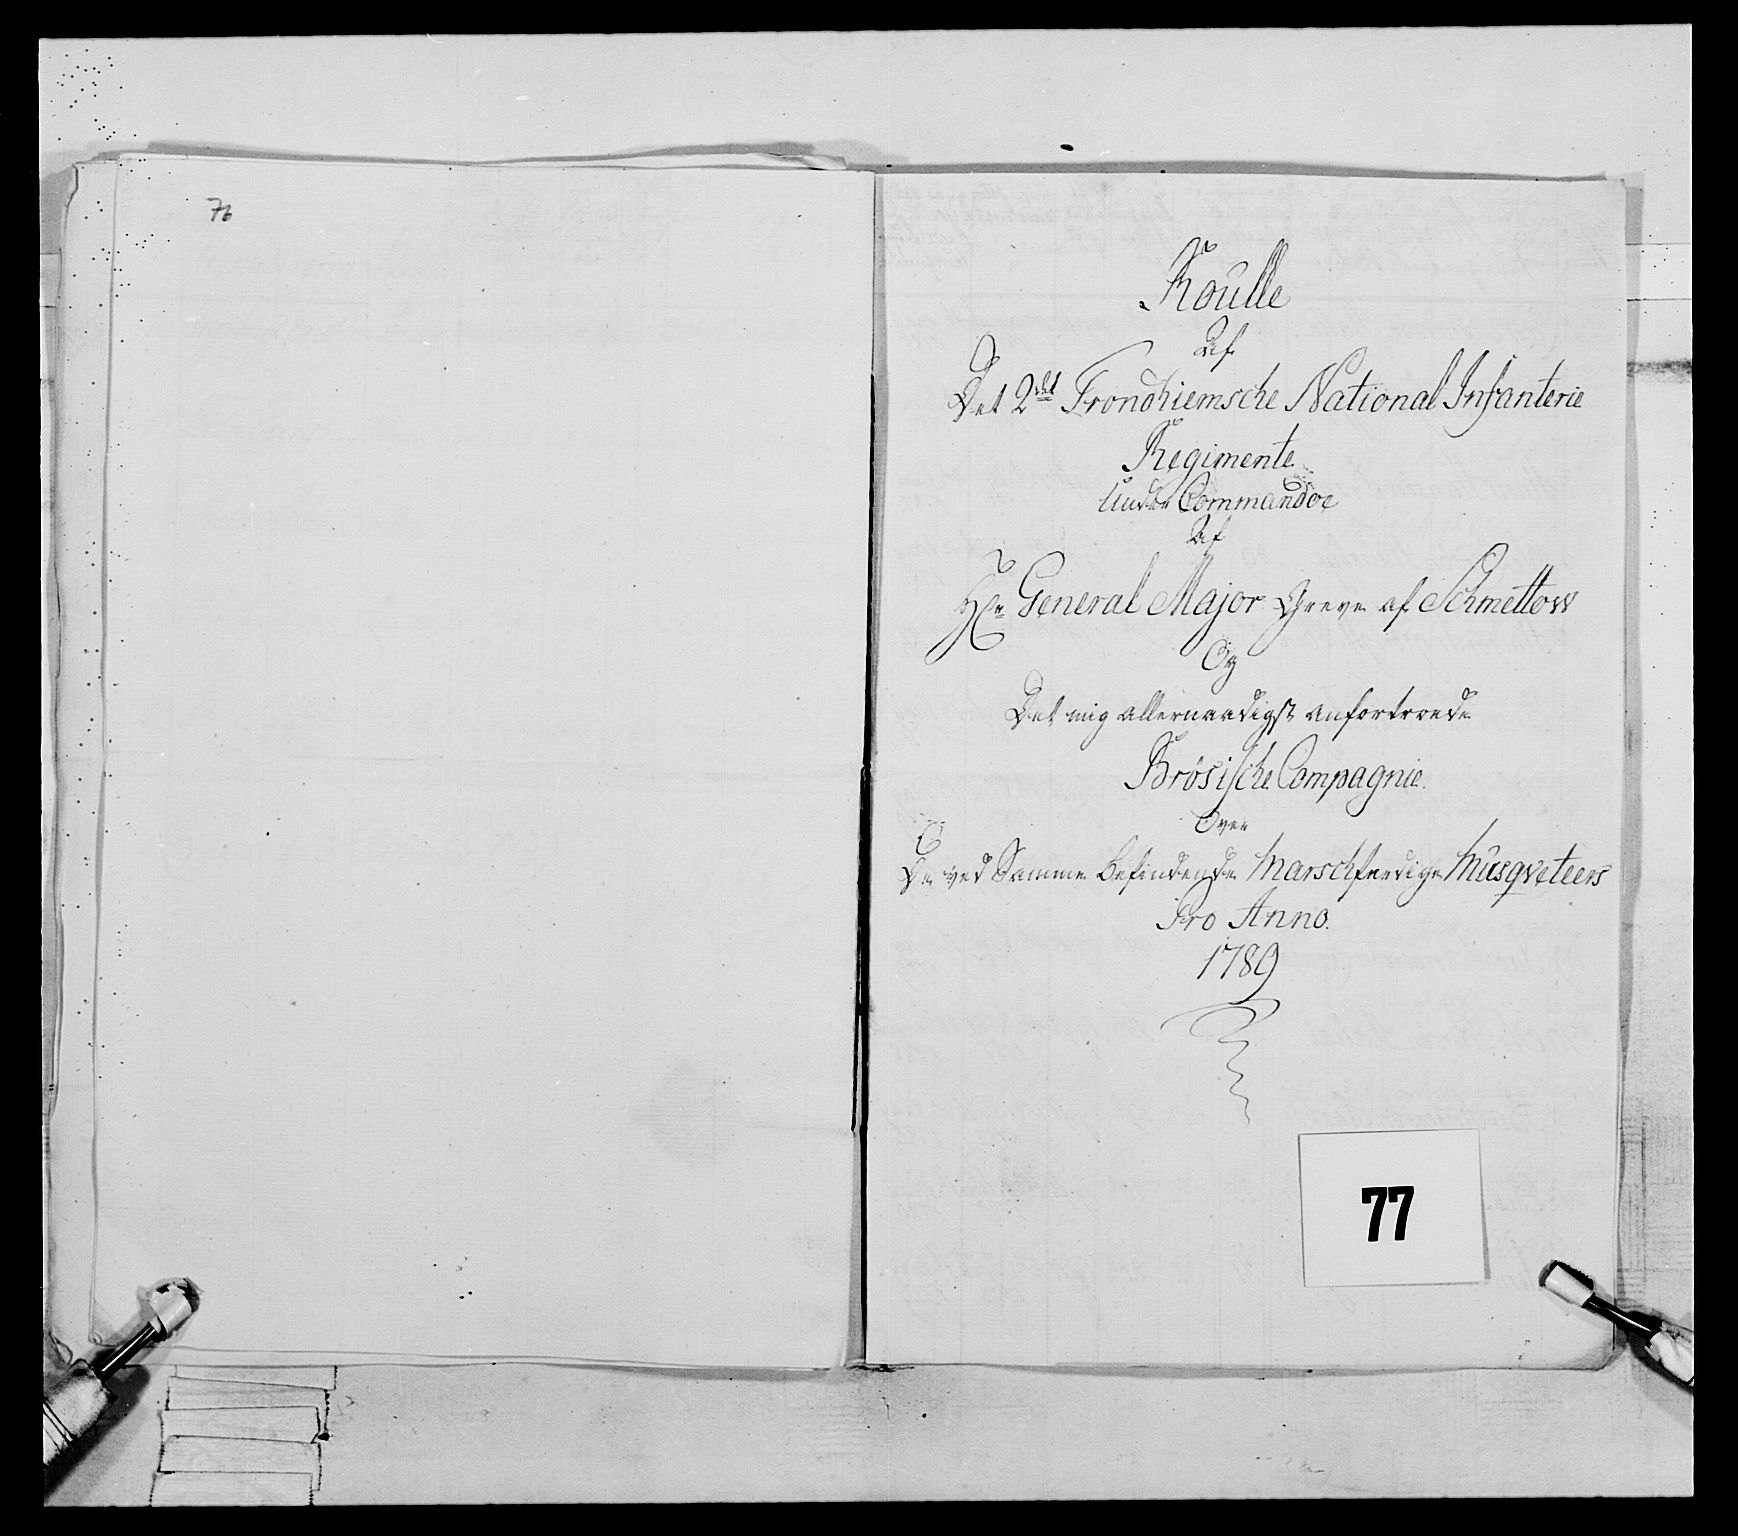 76
Roulle
Af
Det 2det Trondhiemsche National Infanterie
Regimente
Under Commandoe
Af
Hr General Major Greve af Schmettow
Og
Det mig allernaadigst anfortroede
Brösische Compagnie.
Over
De ved Samme befindende Marschferdige Musqveteers
Pro Anno.
1789
77